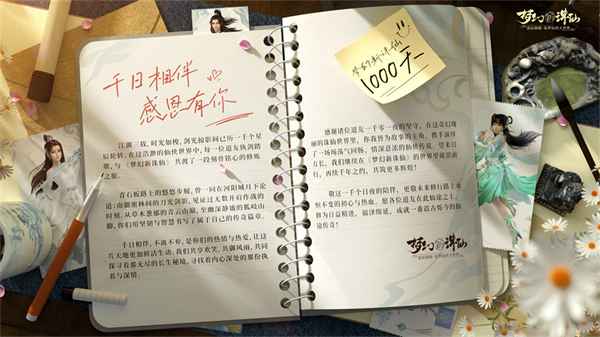 千日相伴
感恩有你
江湖三载,时光如梭,剑光掠影间已历一千个星
辰轮转。在这浩渺的仙侠世界中,每一位道友执剑踏
歌,与《梦幻新诛仙》共渡了一段刻骨铭心的修炼
之旅。
青石板路上的悠悠步履,曾一同在河阳城月下论
道;南疆密林间的刀光剑影,见证过无数并肩作战的
时刻。从草木葱郁的青云山巅,至幽深静谧的孤岐山
脚,你们用坚韧与智慧书写了属于自己的传奇篇章。
千日相伴,不离不弃,是你们的热情与热爱,让这
片天地更加鲜活生动。我们共享欢笑,共御风雨,共同
探寻着那无尽的长生秘境,寻找着内心深处的那份执
着与深情。
梦幻新诛仙
1000天
感谢诸位道友一千零一夜的坚守,在这奇幻瑰
丽的诛仙世界里,你我皆为故事的主角,携手演绎
了一场场荡气回肠、情深意浓的仙侠传说。望来日
方长,我们继续在《梦幻新诛仙》的世界里破浪前
行,再续千年之约,共筑更多辉煌!
敬这一千个日夜的陪伴,更敬未来修行路上永
恒不变的初心与热血。愿各位道友在此仙途之上,
修为日益精进,福泽绵延,成就一番震古烁今的仙
途传奇!
梦幻新诛仙
梦幻新诛仙